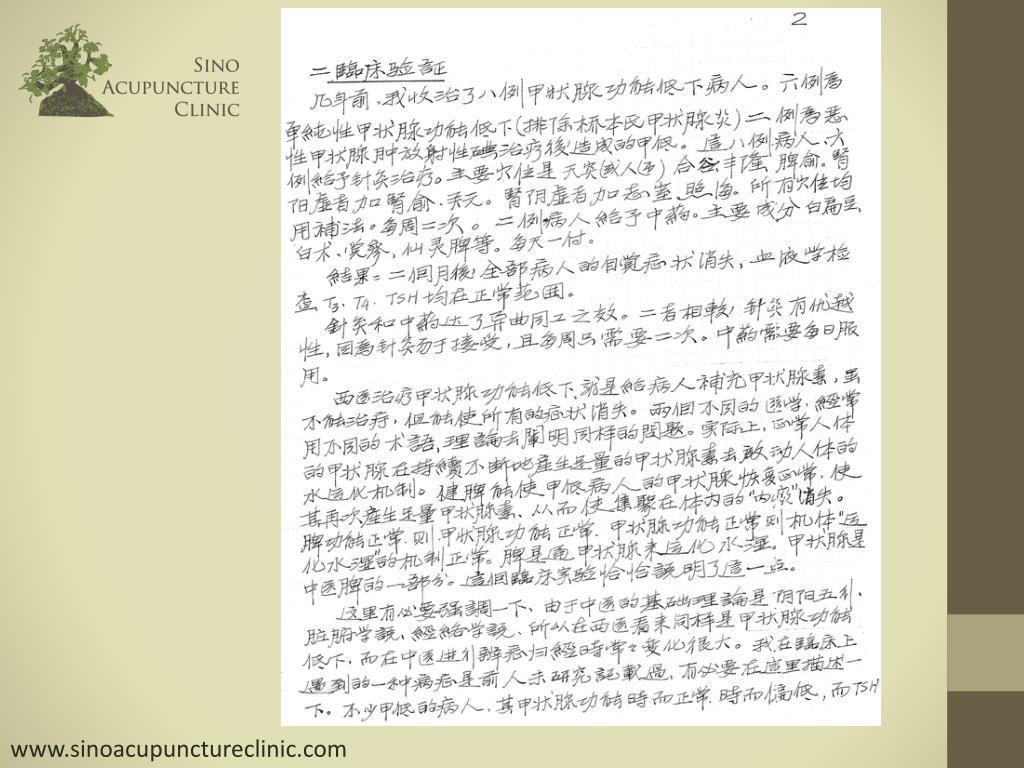 SINO
ACUPUNCTURE
CLINIC
2
二.臨床验証
几年前,我收治了八例甲状腺功能低下病人。六例為
单純性甲状腺功能低下(排除桥本氏甲状腺炎)二例為恶
性甲状腺肿放射性碘治疗後造成的甲低。這八例病人、六
例給予針灸治疗。主要穴位是天突(或人迎)合谷丰隆脾俞.腎
阳虚者加腎俞、关元。腎阴虚者加志室、照海。所有穴位均
用補法。每周二次。二例病人給予中药。主要成分白扁豆、
白术、党參,仙灵脾等。每天一付。
結果:二個月後,全部病人的自覚症状消失,血液学检
查T3、T4、TSH均在正常范围。
針灸和中药达了异曲同工之效。二者相較,針灸有优越
性,因為針灸易于接受,且每周只需要二次。中药需要每日服
用。
西医治疗甲状腺功能低下就是給病人補充甲状腺素,虽
不能治疗,但能使所有的症状消失。两個不同的医学,經常
用不同的术語,理論去闡明同样的問题。实际上,正常人体
的甲状腺在持續不断地產生足量的甲状腺素去啟动人体的
水运化机制。健脾能使甲低病人的甲状腺恢复正常,使
其再次產生足量甲状腺素、从而使集聚在体内的"内痰"消失。
脾功能正常.则甲状腺功能正常.甲状腺功能正常则机体"运
化水湿"的机制正常。脾是通甲状腺来运化水湿。甲状腺是
中医脾的一部分。這個臨床实验恰恰説明了這一点。
这里有必要强調一下、由于中医的基础理論是阴阳五行、
脏腑学説、經絡学説、所以在西医看来同样是甲状腺功能
低下,而在中医进行辨症归經時常々变化很大。我在臨床上
遇到的一种病症是前人未研究記載過,有必要在這里描述一
下。不少甲低的病人、其甲状腺功能時而正常.時而偏低,而TSH
www.sinoacupunctureclinic.com